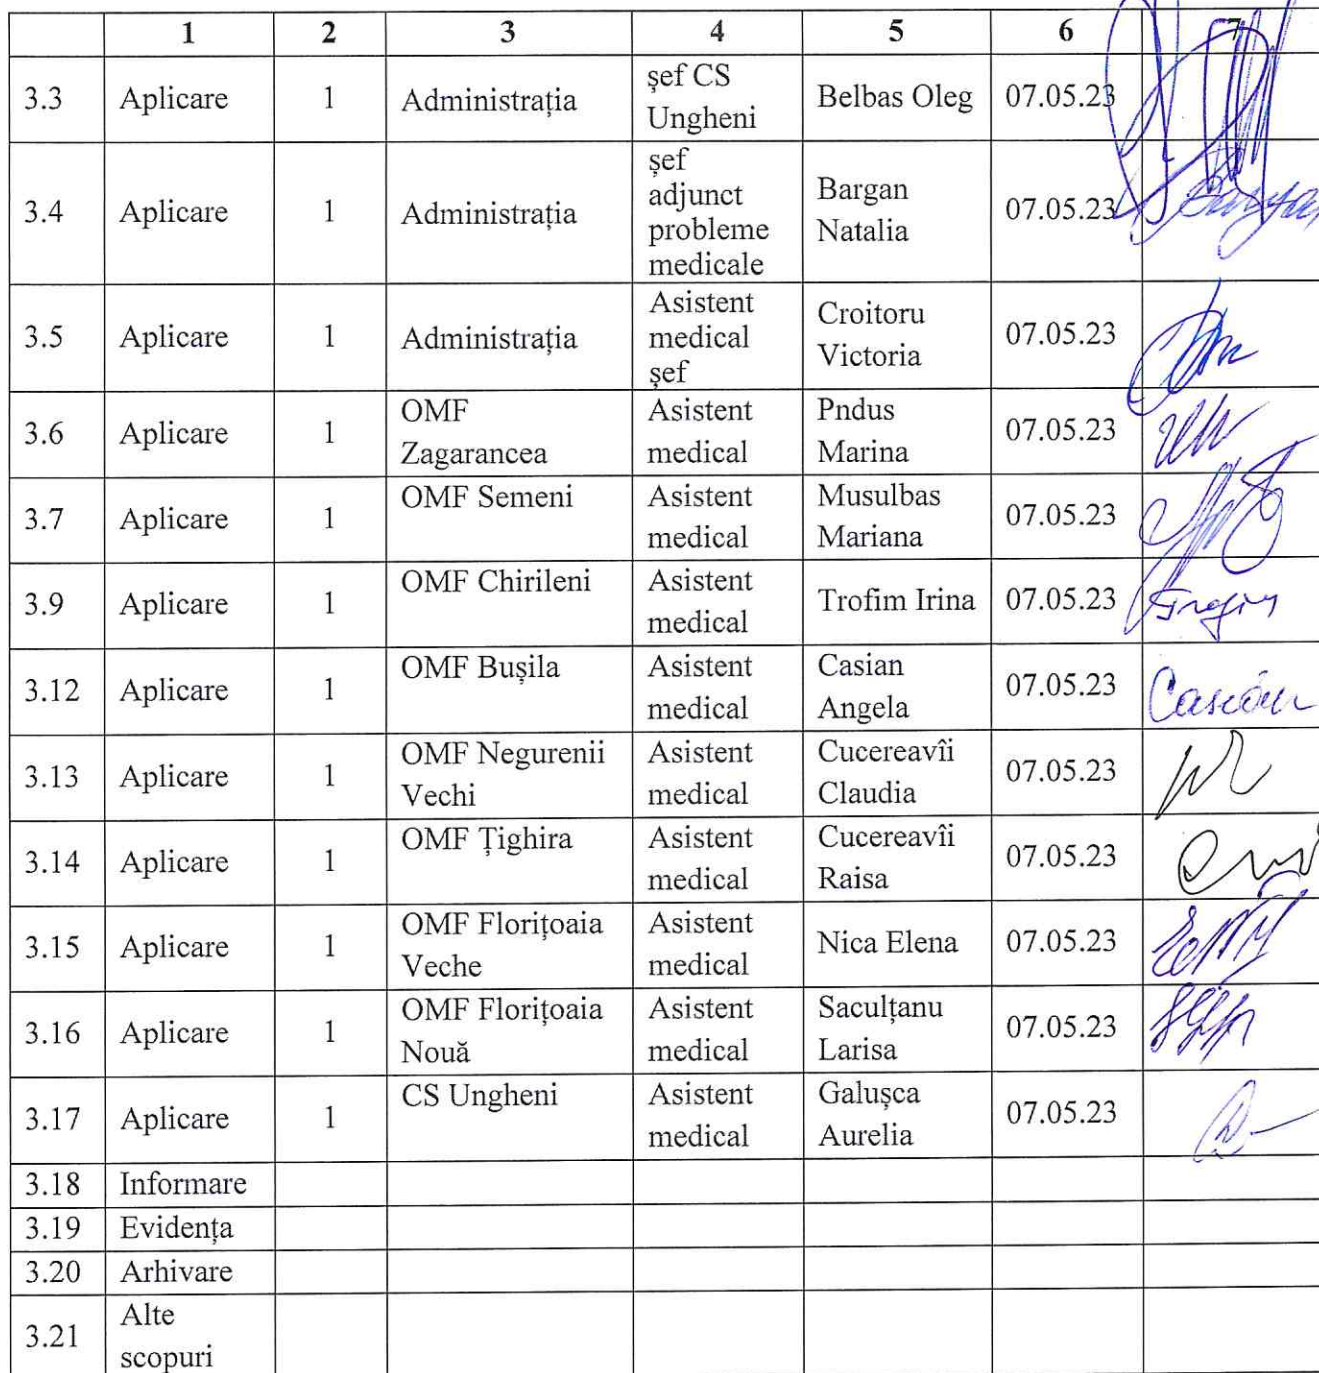 1 2 3 4 5 6 7
3.3 Aplicare 1 Administrația șef CS Ungheni Belbas Oleg 07.05.23
3.4 Aplicare 1 Administrația șef adjunct probleme medicale Bargan Natalia 07.05.23
3.5 Aplicare 1 Administrația Asistent medical șef Croitoru Victoria 07.05.23
3.6 Aplicare 1 OMF Zagarancea Asistent medical Pndus Marina 07.05.23
3.7 Aplicare 1 OMF Semeni Asistent medical Musulbas Mariana 07.05.23
3.9 Aplicare 1 OMF Chirileni Asistent medical Trofim Irina 07.05.23
3.12 Aplicare 1 OMF Bușila Asistent medical Casian Angela 07.05.23
3.13 Aplicare 1 OMF Negurenii Vechi Asistent medical Cucereavîi Claudia 07.05.23
3.14 Aplicare 1 OMF Țighira Asistent medical Cucereavîi Raisa 07.05.23
3.15 Aplicare 1 OMF Florițoaia Veche Asistent medical Nica Elena 07.05.23
3.16 Aplicare 1 OMF Florițoaia Nouă Asistent medical Saculțanu Larisa 07.05.23
3.17 Aplicare 1 CS Ungheni Asistent medical Galușca Aurelia 07.05.23
3.18 Informare
3.19 Evidența
3.20 Arhivare
3.21 Alte scopuri